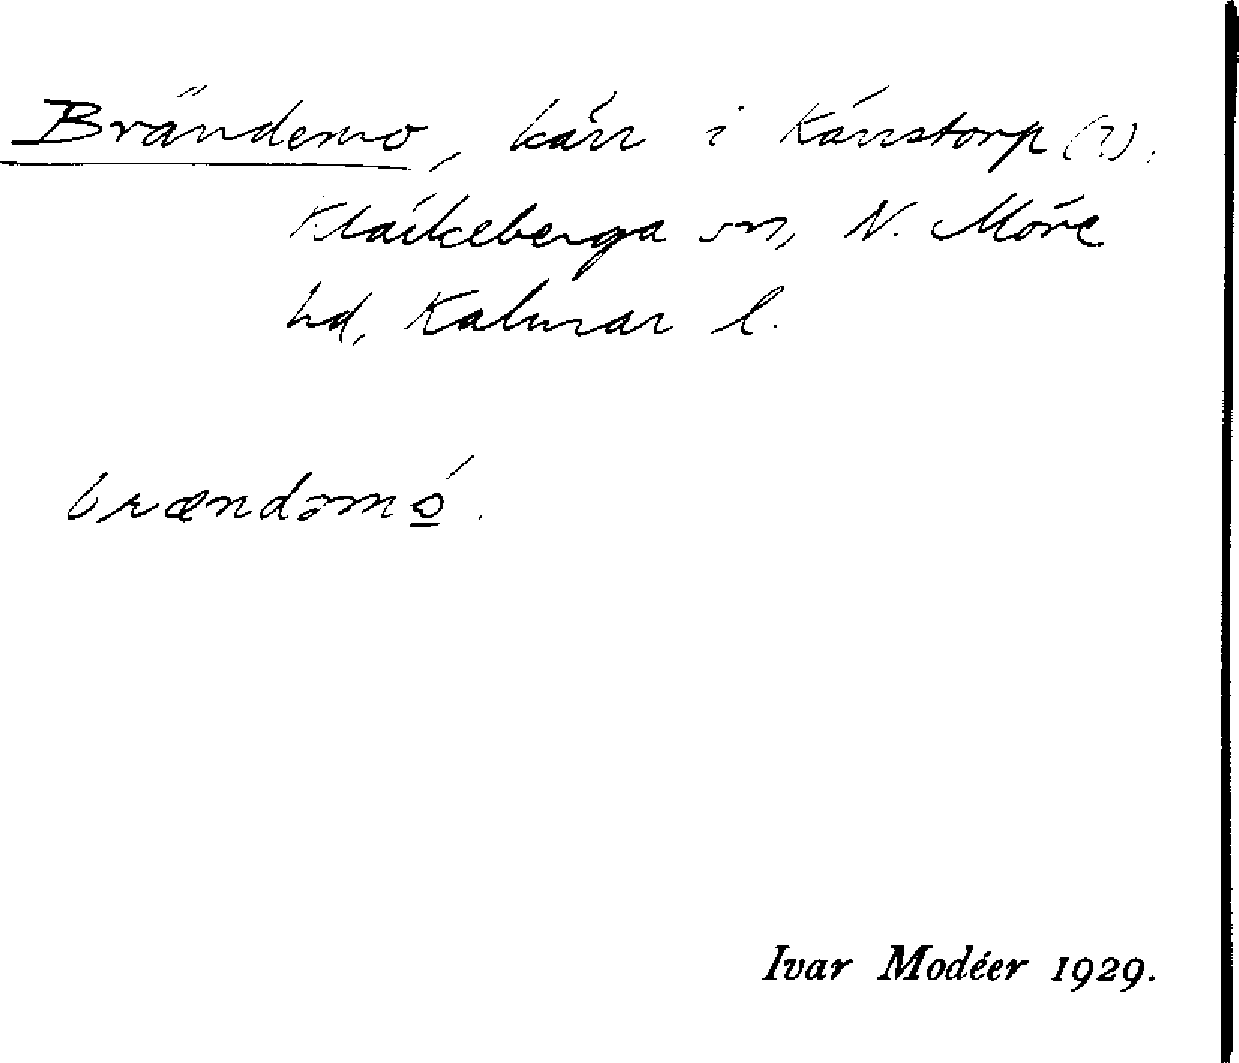 Brändemo, kärr i Kärrstorp (?),
Kläckeberga sn, N. Möre
hd, Kalmar l.
brændəmó.
Ivar Modéer 1929.